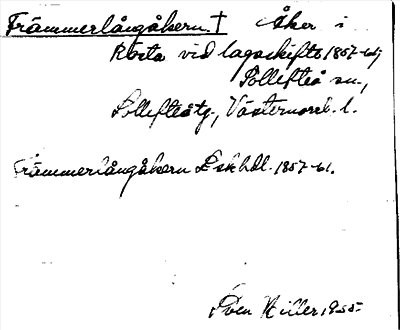 Främmerlångåkern. † Åker i
Rösta vid lagaskifte 1857-61
Sollefteå sn.,
Sollefteå tg., Västernorrl. l.
Främmerlångåkern L sk hdl. 1857-61.
Sven Hiller 1955.